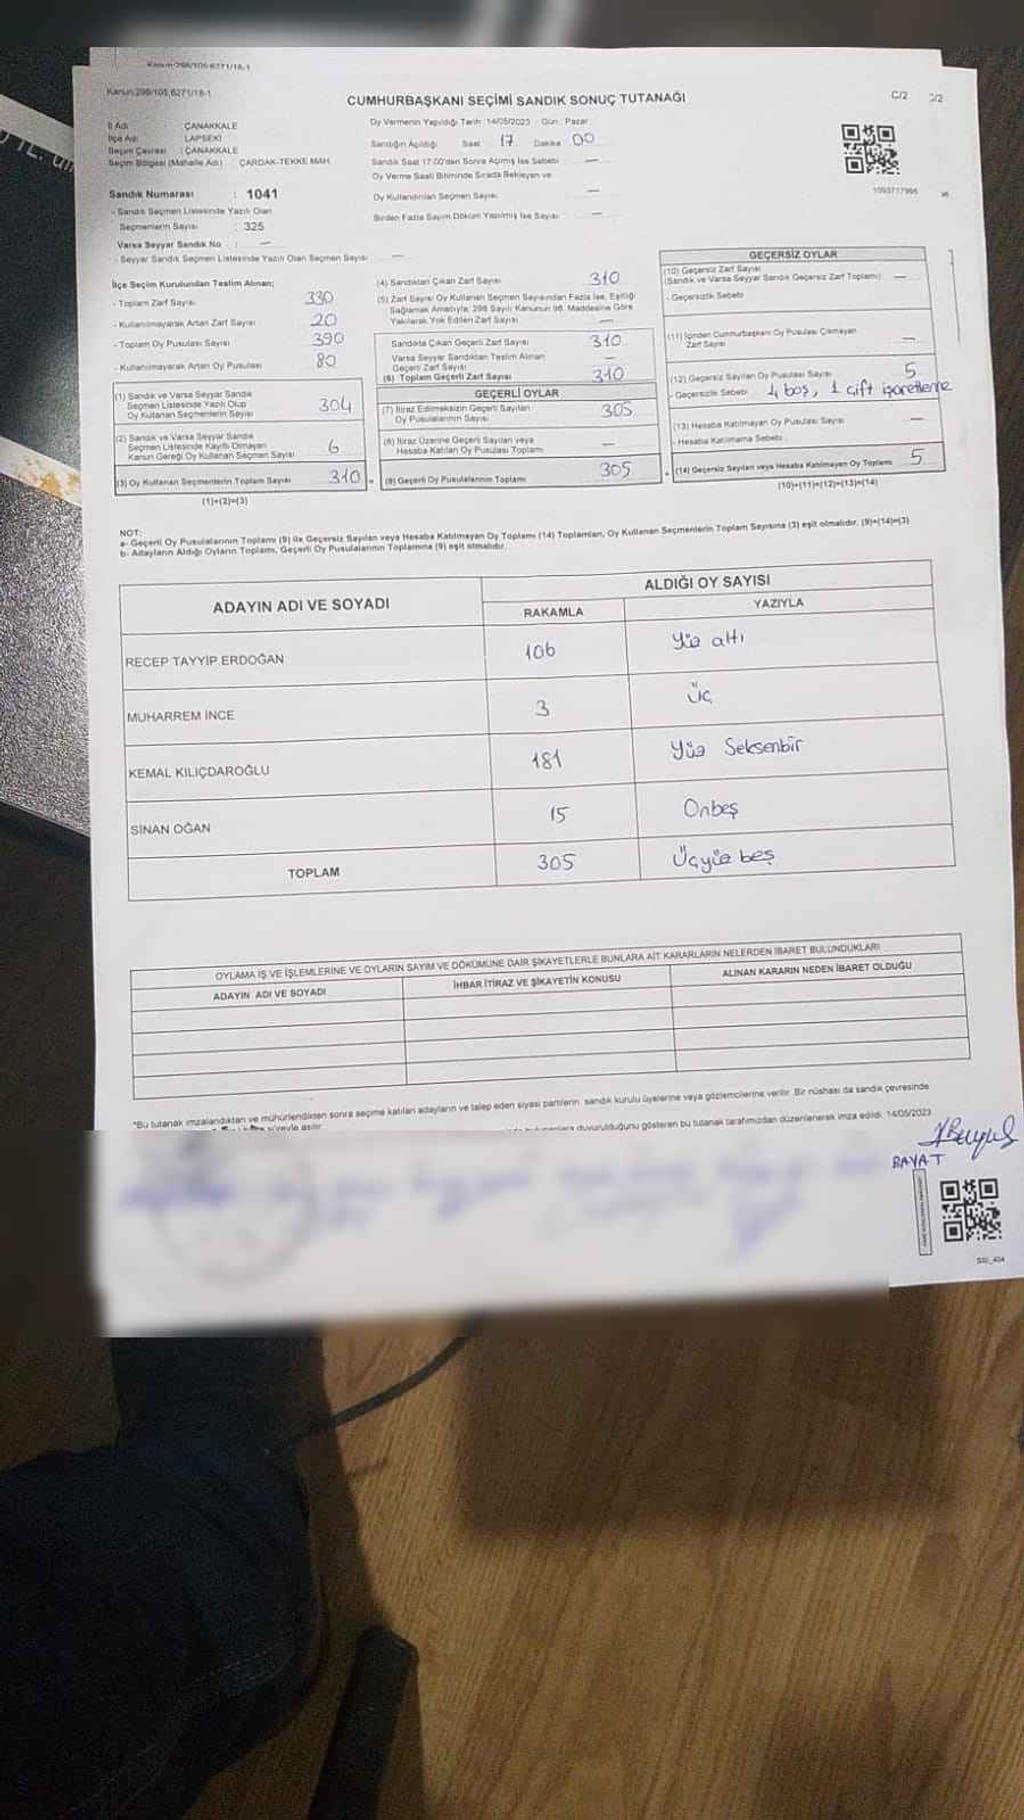 Kanun 298/105,6271/18-1
Kanun 298/105,6271/18-1
CUMHURBAŞKANI SEÇİMİ SANDIK SONUÇ TUTANAĞI
C/2
:/2
İl Adı : ÇANAKKALE
İlçe Adı : LAPSEKİ
Seçim Çevresi : ÇANAKKALE
Seçim Bölgesi (Mahalle Adı) : ÇARDAK-TEKKE MAH.
Sandık Numarası : 1041
- Sandık Seçmen Listesinde Yazılı Olan
Seçmenlerin Sayısı : 325
Varsa Seyyar Sandık No : —
- Seyyar Sandık Seçmen Listesinde Yazılı Olan Seçmen Sayısı —
Oy Vermenin Yapıldığı Tarih :14/05/2023 Gün : Pazar
Sandığın Açıldığı Saat 17 Dakika 00
Sandık Saat 17:00'den Sonra Açılmış İse Sebebi —
Oy Verme Saati Bitiminde Sırada Bekleyen ve
Oy Kullandırılan Seçmen Sayısı —
Birden Fazla Sayım Döküm Yapılmış İse Sayısı —
1093777996
İlçe Seçim Kurulundan Teslim Alınan;
- Toplam Zarf Sayısı 330
- Kullanılmayarak Artan Zarf Sayısı 20
- Toplam Oy Pusulası Sayısı 390
- Kullanılmayarak Artan Oy Pusulası 80
(1) Sandık ve Varsa Seyyar Sandık
Seçmen Listesinde Yazılı Olup
Oy Kullanan Seçmenlerin Sayısı 304
(2) Sandık ve Varsa Seyyar Sandık
Seçmen Listesinde Kayıtlı Olmayan
Kanun Gereği Oy Kullanan Seçmen Sayısı 6
(3) Oy Kullanan Seçmenlerin Toplam Sayısı 310 =
(1)+(2)=(3)
(4) Sandıktan Çıkan Zarf Sayısı 310
(5) Zarf Sayısı Oy Kullanan Seçmen Sayısından Fazla İse, Eşitliği
Sağlamak Amacıyla; 298 Sayılı Kanunun 98. Maddesine Göre
Yakılarak Yok Edilen Zarf Sayısı —
Sandıkta Çıkan Geçerli Zarf Sayısı 310
Varsa Seyyar Sandıktan Teslim Alınan
Geçerli Zarf Sayısı —
(6) Toplam Geçerli Zarf Sayısı 310
GEÇERLİ OYLAR
(7) İtiraz Edilmeksizin Geçerli Sayılan
Oy Pusulalarının Sayısı 305
(8) İtiraz Üzerine Geçerli Sayılan veya
Hesaba Katılan Oy Pusulası Toplamı —
(9) Geçerli Oy Pusulalarının Toplamı 305 +
GEÇERSİZ OYLAR
(10) Geçersiz Zarf Sayısı
(Sandık ve Varsa Seyyar Sandık Geçersiz Zarf Toplamı) —
- Geçersizlik Sebebi
(11) İçinden Cumhurbaşkanı Oy Pusulası Çıkmayan
Zarf Sayısı —
(12) Geçersiz Sayılan Oy Pusulası Sayısı 5
- Geçersizlik Sebebi 4 boş, 1 çift işaretleme
(13) Hesaba Katılmayan Oy Pusulası Sayısı —
- Hesaba Katılmama Sebebi
(14) Geçersiz Sayılan veya Hesaba Katılmayan Oy Toplamı 5
(10)+(11)+(12)+(13)=(14)
NOT:
a- Geçerli Oy Pusulalarının Toplamı (9) ile Geçersiz Sayılan veya Hesaba Katılmayan Oy Toplamı (14) Toplamları, Oy Kullanan Seçmenlerin Toplam Sayısına (3) eşit olmalıdır. (9)+(14)=(3)
b- Adayların Aldığı Oyların Toplamı, Geçerli Oy Pusulalarının Toplamına (9) eşit olmalıdır.
ADAYIN ADI VE SOYADI
ALDIĞI OY SAYISI
RAKAMLA YAZIYLA
RECEP TAYYİP ERDOĞAN 106 Yüz altı
MUHARREM İNCE 3 Üç
KEMAL KILIÇDAROĞLU 181 Yüz Seksenbir
SİNAN OĞAN 15 Onbeş
TOPLAM 305 Üçyüz beş
OYLAMA İŞ VE İŞLEMLERİNE VE OYLARIN SAYIM VE DÖKÜMÜNE DAİR ŞİKAYETLERLE BUNLARA AİT KARARLARIN NELERDEN İBARET BULUNDUKLARI
ADAYIN ADI VE SOYADI İHBAR İTİRAZ VE ŞİKAYETİN KONUSU ALINAN KARARIN NEDEN İBARET OLDUĞU
*Bu tutanak imzalandıktan ve mühürlendikten sonra seçime katılan adayların ve talep eden siyasi partilerin, sandık kurulu üyelerine veya gözlemcilerine verilir. Bir nüshası da sandık çevresinde
süreyle asılır.
duyurulduğunu gösteren bu tutanak tarafımızdan düzenlenerek imza edildi. 14/05/2023
BAYAT